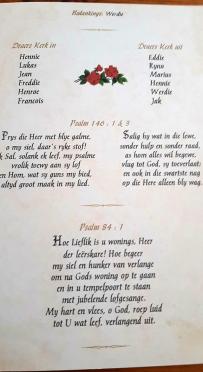 Bedankings: Werdie
Draers Kerk in
Hennie
Lukas
Jean
Freddie
Henroe
Francois
Draers Kerk uit
Eddie
Ryno
Marius
Hennie
Werdie
Jak
Psalm 146 : 1 & 3
Prys die Heer met blye galme,
o my siel, daar's ryke stof!
k Sal, solank ek leef, my psalme
vrolik toewy aan sy lof
en Hom, wat sy guns my bied,
altyd groot maak in my lied.
Salig hy wat in die lewe,
sonder hulp en sonder raad,
as hom alles wil begewe,
vlug tot God, sy toeverlaat;
en ook in die swartste nag
op die Here alleen bly wag.
Psalm 84 : 1
Hoe lieflik is u wonings, Heer
der leërskare! Hoe begeer
my siel en hunker van verlange
om na Gods woning op te gaan
en in u tempelpoort te staan
met jubelende lofgesange.
My hart en vlees, o God, roep luid
tot U wat leef, verlangend uit.